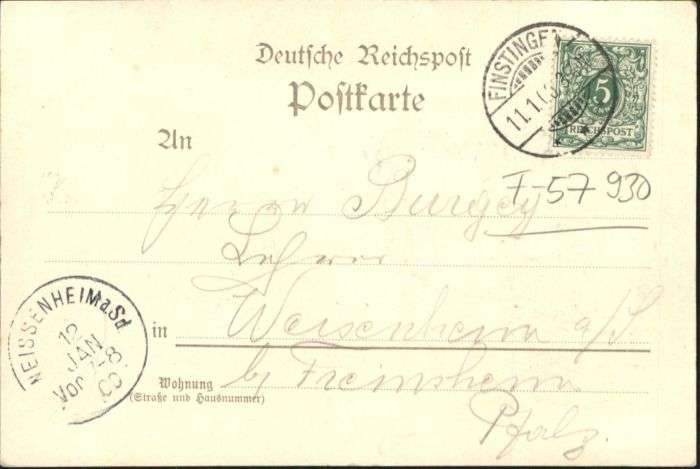 Deutsche Reichspost
Postkarte
FINSTINGEN
11.1.
5
REICHSPOST
An
F-57 930
Herrn Burgey
Lehrer
in Weisenheim a/S.
b/ Freinsheim
Wohnung
(Straße und Hausnummer)
Pfalz.
WEISSENHEIM a.Sd
12
JAN
Vor 7-8
00